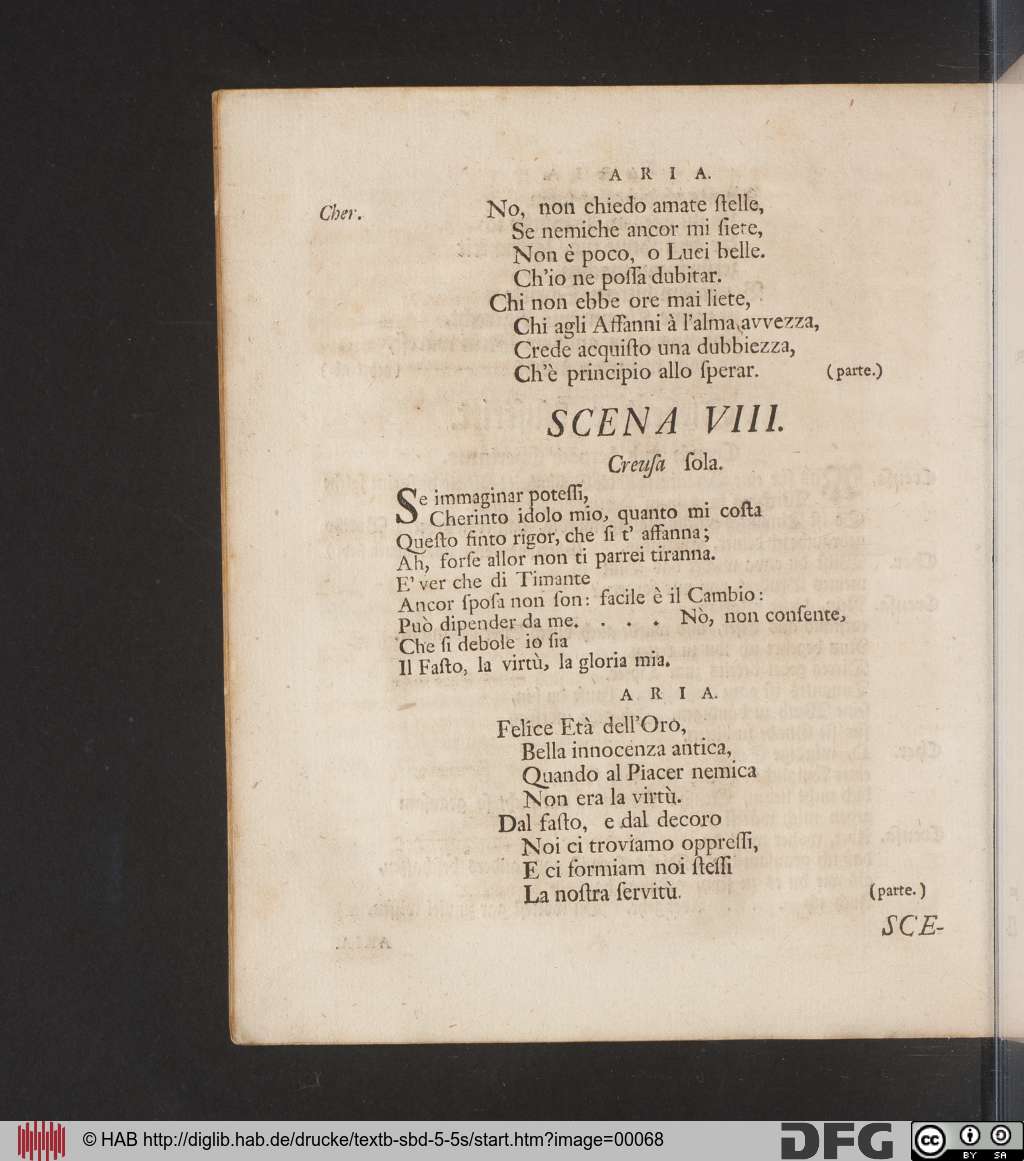 A R I A.
Cher. No, non chiedo amate ſtelle,
Se nemiche ancor mi ſiete,
Non è poco, o Luci belle.
Ch'io ne poſſa dubitar.
Chi non ebbe ore mai liete,
Chi agli Affanni à l'alma avvezza,
Crede acquiſto una dubbiezza,
Ch'è principio allo ſperar. (parte.)
SCENA VIII.
Creuſa ſola.
Se immaginar poteſſi,
Cherinto idolo mio, quanto mi coſta
Queſto finto rigor, che ſi t' affanna;
Ah, forſe allor non ti parrei tiranna.
E' ver che di Timante
Ancor ſpoſa non ſon: facile è il Cambio:
Può dipender da me. . . . . Nò, non conſente,
Che ſi debole io ſia
Il Faſto, la virtù, la gloria mia.
A R I A.
Felice Età dell'Oro,
Bella innocenza antica,
Quando al Piacer nemica
Non era la virtù.
Dal faſto, e dal decoro
Noi ci troviamo oppreſſi,
E ci formiam noi ſteſſi
La noſtra ſervitù. (parte.)
SCE-
© HAB http://diglib.hab.de/drucke/textb-sbd-5-5s/start.htm?image=00068
DFG
cc BY SA